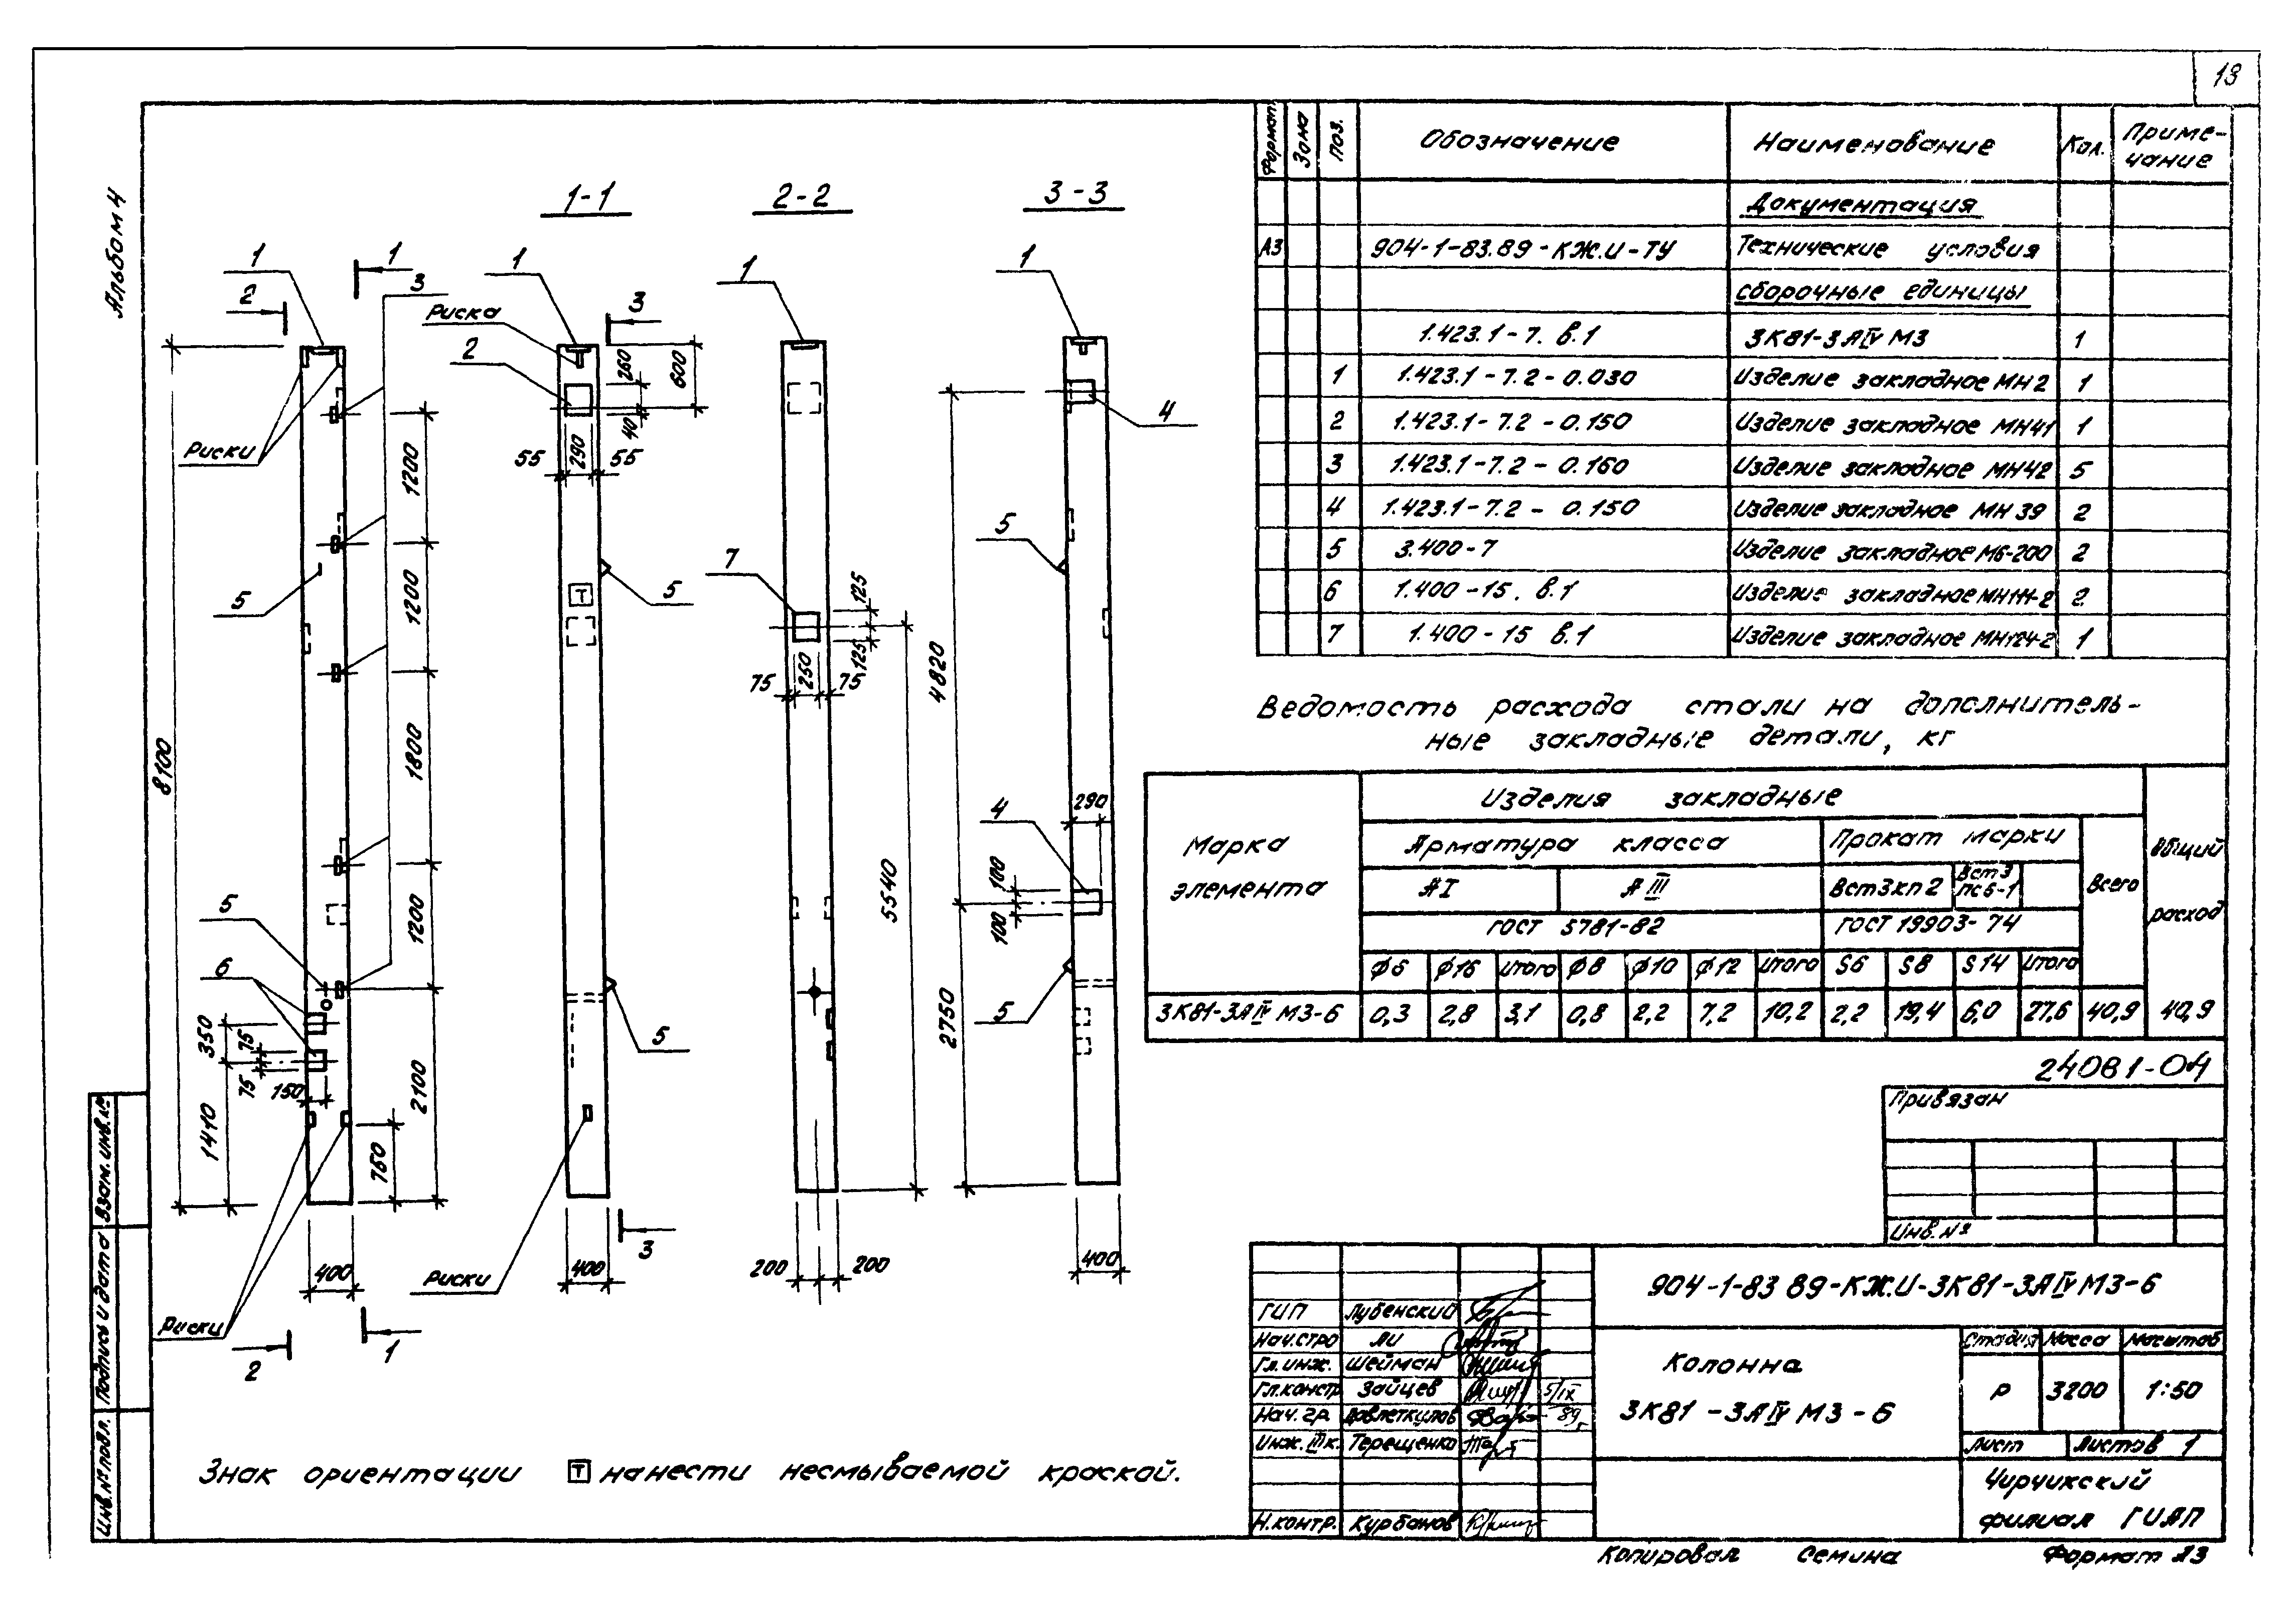 13
Альбом 4
1-1
2-2
3-3
1
1
2
3
Риски
5
5
6
8100
1200
1200
1800
1200
2100
350
75
75
150
1410
760
400
Риски
2
1
1
Риска
2
3
260
600
40
55
290
55
5
5
Риски
400
3
1
7
125
125
75
250
75
5540
200
200
1
4
5
4820
290
4
100
100
5
2750
400
Знак ориентации Т нанести несмываемой краской.
Формат Зона Поз. Обозначение Наименование Кол. Приме-
чание
Документация
А3 904-1-83.89-КЖ.И-ТУ Технические условия
сборочные единицы
1.423.1-7. в.1 3К81-3АIV М3 1
1 1.423.1-7.2-0.030 Изделие закладное МН2 1
2 1.423.1-7.2-0.150 Изделие закладное МН41 1
3 1.423.1-7.2-0.160 Изделие закладное МН42 5
4 1.423.1-7.2-0.150 Изделие закладное МН39 2
5 3.400-7 Изделие закладное М6-200 2
6 1.400-15. в.1 Изделие закладное МН111-2 2
7 1.400-15 в.1 Изделие закладное МН124-2 1
Ведомость расхода стали на дополнитель-
ные закладные детали, кг
Марка
элемента
Изделия закладные
Общий
расход
Арматура класса Прокат марки Всего
АI АIII Вст3кп2 Вст3
пс6-1
ГОСТ 5781-82 ГОСТ 19903-74
ф6 ф16 Итого ф8 ф10 ф12 Итого S6 S8 S14 Итого
3К81-3АIV М3-6 0,3 2,8 3,1 0,8 2,2 7,2 10,2 2,2 19,4 6,0 27,6 40,9 40,9
24081-04
Привязан
Инв.№
904-1-83 89-КЖ.И-3К81-3АIV М3-6
ГИП Лубенский
Нач.стро Ли
Гл.инж. Шейман
Гл.констр Зайцев 5/IX
Нач.гр Довлеткулов 89г
Инж.IIIк. Терещенко
Н.контр. Курбанов
Колонна
3К81-3АIV М3-6
Стадия Масса Масштаб
Р 3200 1:50
Лист Листов 1
Чирчикский
филиал ГИАП
Копировал Семина Формат А3
Инв.№ подл. Подпись и дата Взам.инв.№